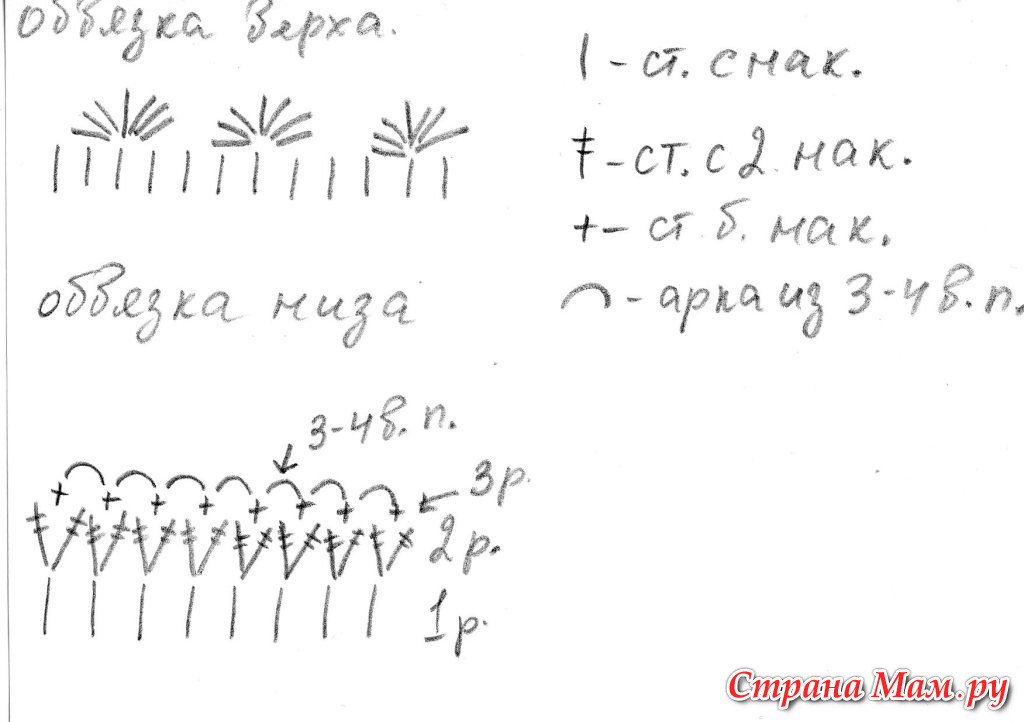 обвязка верха.
| - ст. с нак.
ǂ - ст. с 2 нак.
+ - ст. б. нак.
⌒ - арка из 3-4 в. п.
обвязка низа
3-4 в. п.
3 р.
2 р.
1 р.
Страна Мам.ру